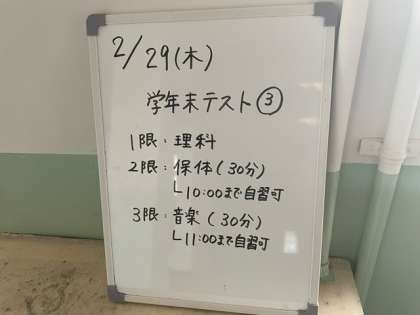 2/29(木)
学年末テスト③
1限:理科
2限:保体(30分)
└10:00まで自習可
3限:音楽(30分)
└11:00まで自習可